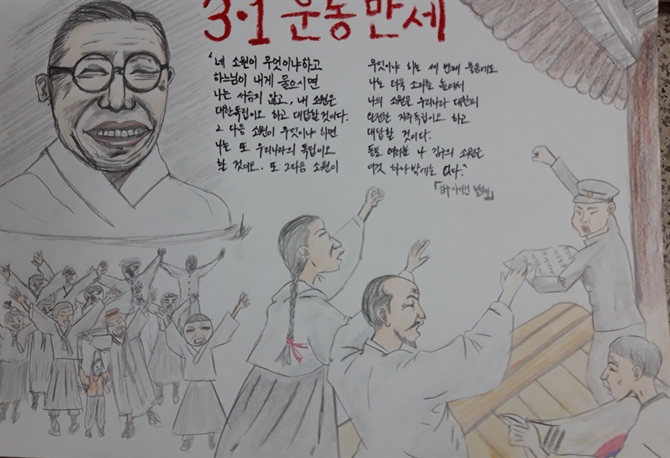 3·1 운동 만세
"네 소원이 무엇이냐하고
하느님이 내게 물으시면
나는 서슴지 않고, 내 소원은
대한독립이오 하고 대답할 것이다.
그 다음 소원이 무엇이냐 하면
나는 또 우리나라의 독립이오
할 것이오. 또 그다음 소원이
무엇이냐 하는 세 번째 물음에도
나는 더욱 소리를 높여서
나의 소원은 우리나라 대한의
완전한 자주독립이오 하고
대답할 것이다.
동포 여러분 나 김구의 소원은
이것 하나밖에는 없다."